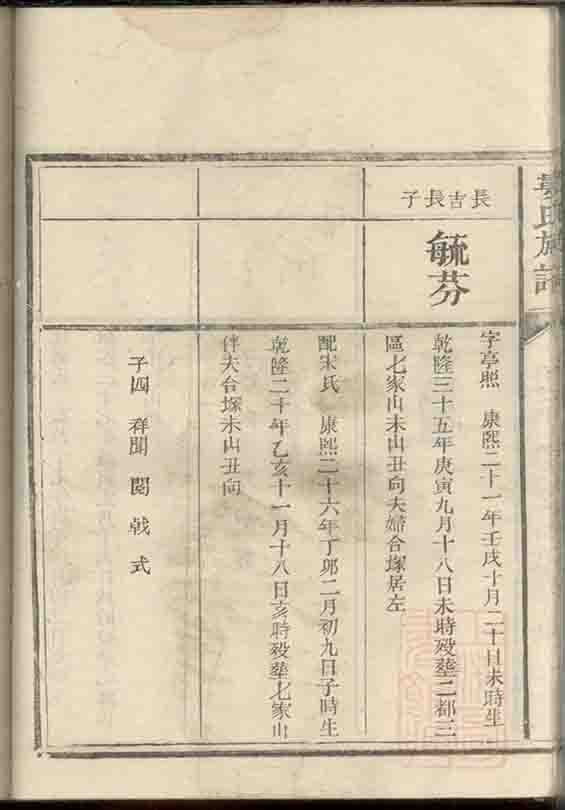 氏族譜
長吉長子
毓芬
字亭煕　康熙二十一年壬戌十月二十日未時生
乾隆三十五年庚寅九月十八日未時歿塟二都三
區七家山未山丑向夫婦合塚居左
配宋氏　康熙二十六年丁卯二月初九日子時生
乾隆二十年乙亥十一月十八日亥時歿塟七家山
伴夫合塚未山丑向
子四　祥聞　閱　戟　式